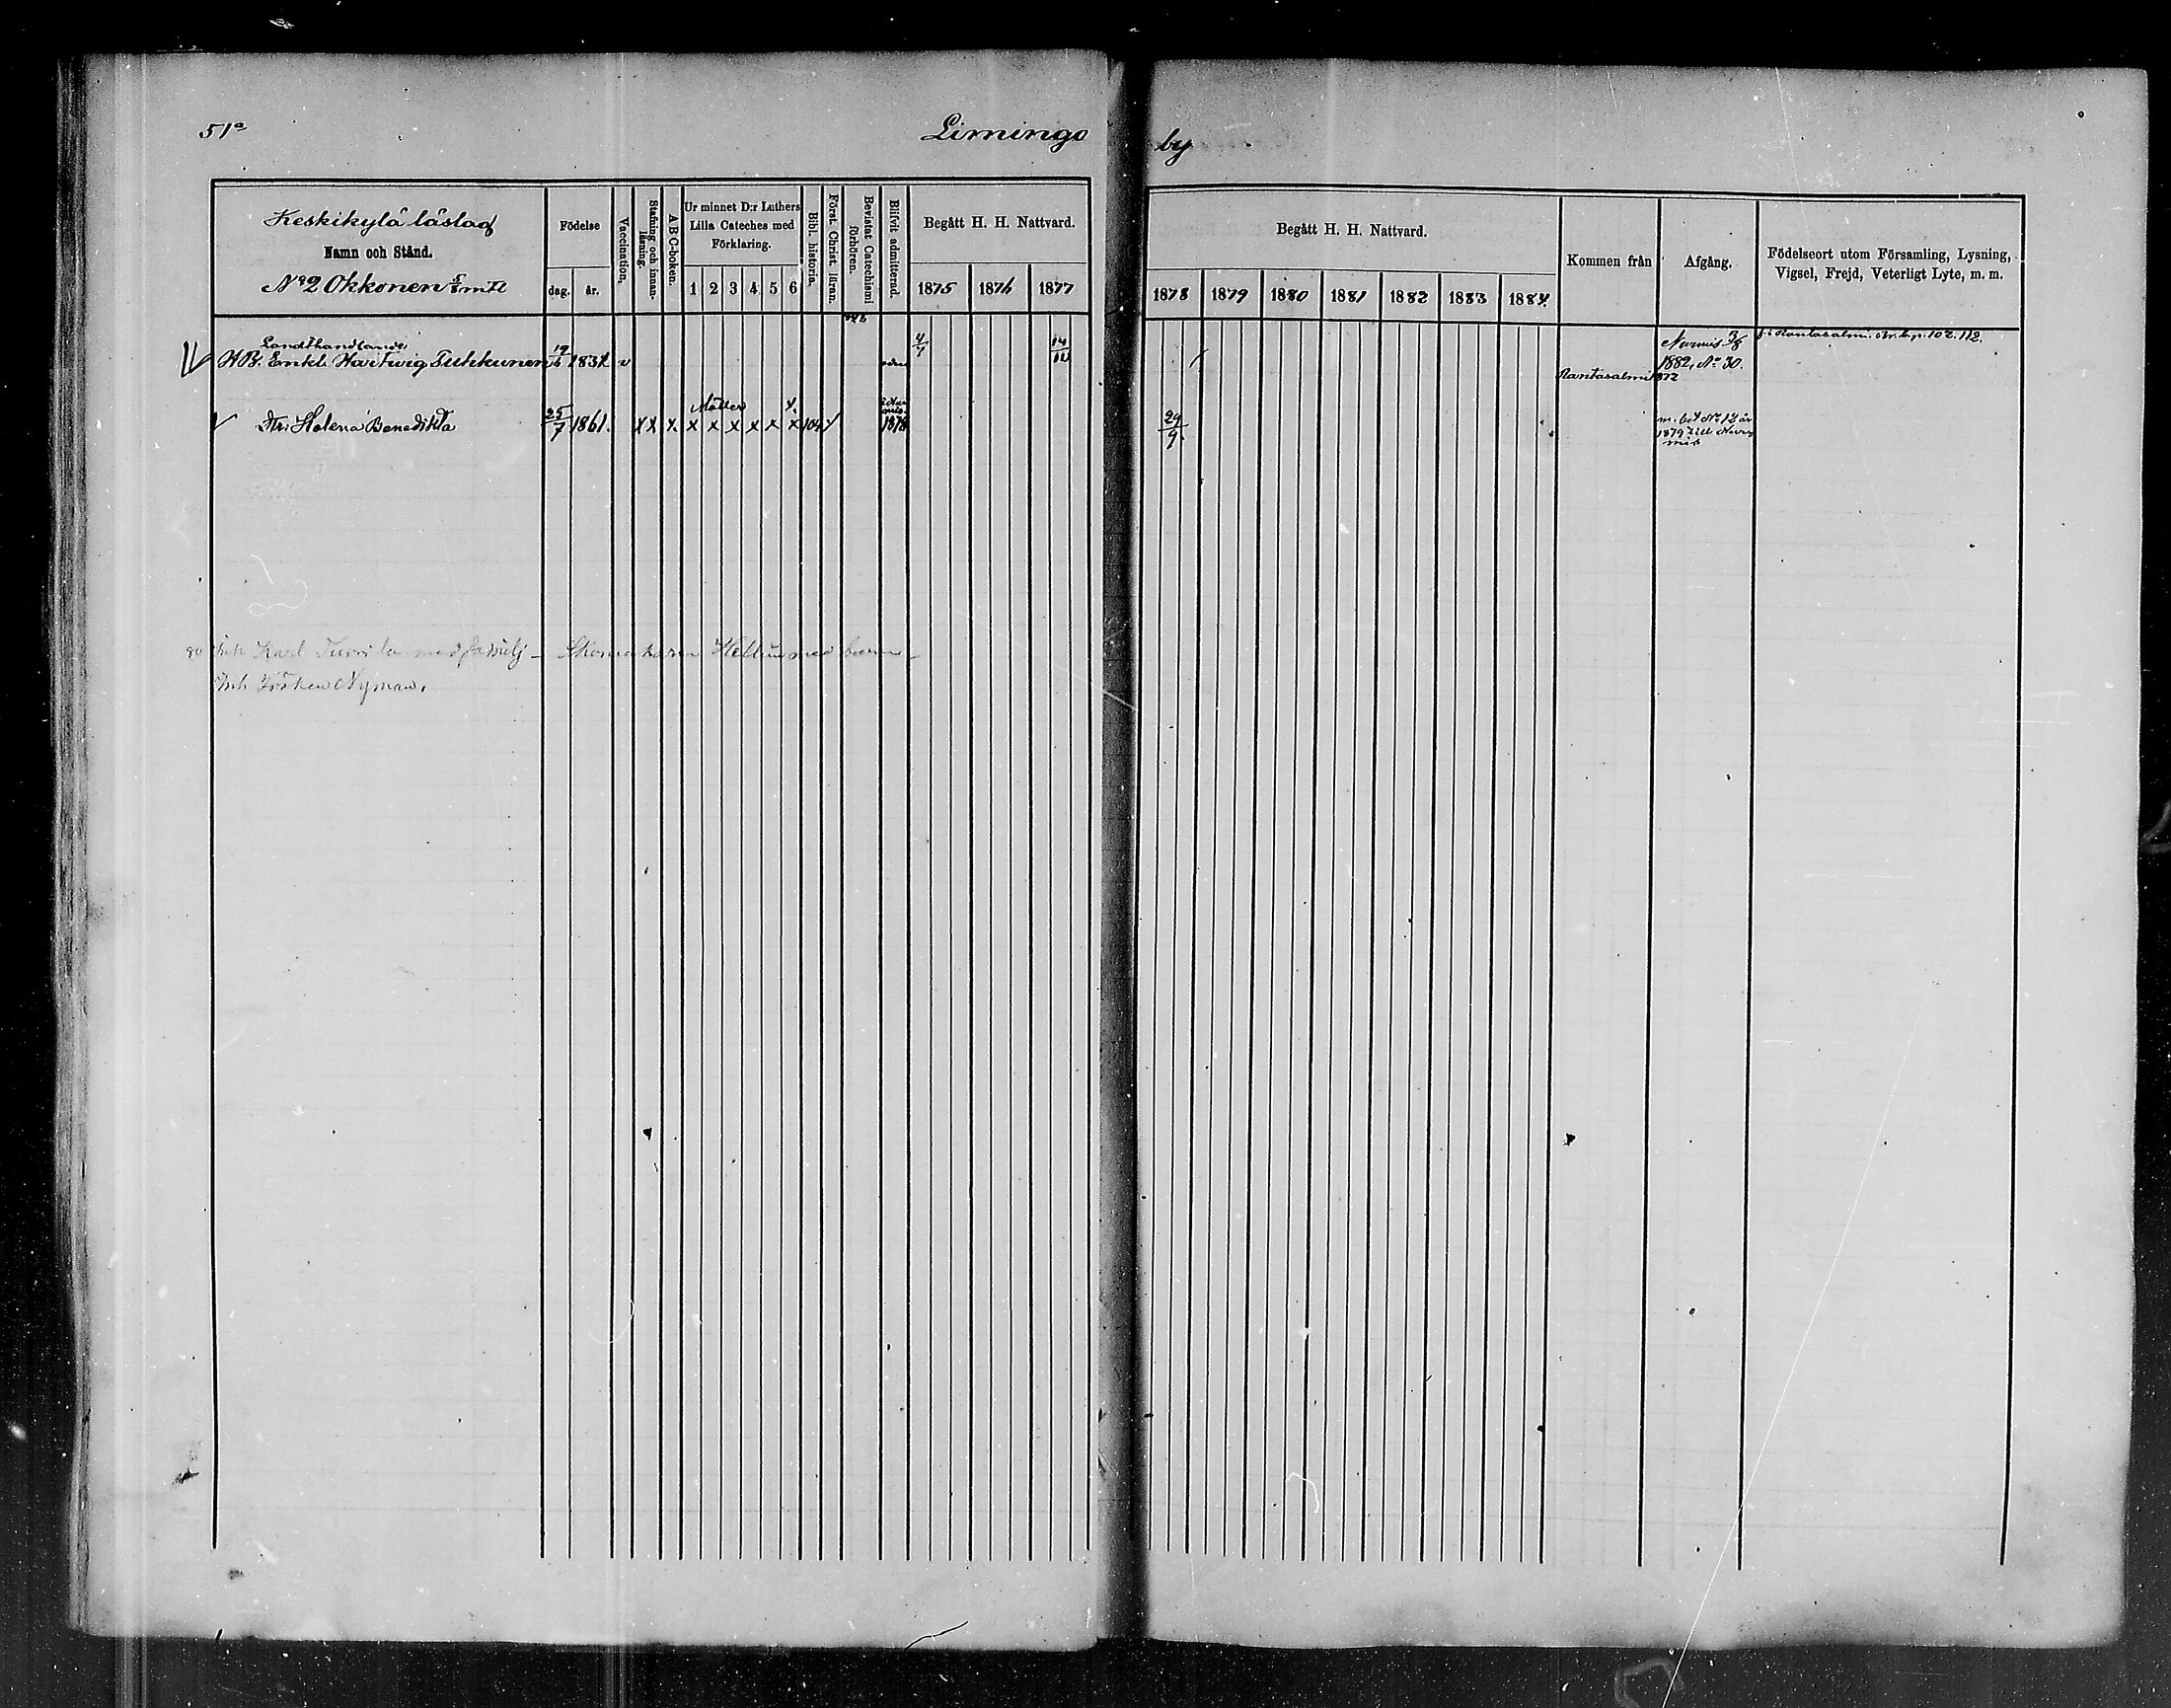 51a
Limingo by
Keskikylä läslag
Namn och Stånd.
No 2 Okkonen 5/8 mtl
Födelse
dag. år.
Vaccination.
Stafning och innan-läsning.
A-B-C-boken.
Ur minnet D:r Luthers
Lilla Cateches med
Förklaring.
1 2 3 4 5 6
Bibl. historia.
Först. Christ. liran.
Bevistat Catechismi förhören.
Blifvit admitterad.
Begått H. H. Nattvard.
1875 1876 1877
Begått H. H. Nattvard.
1878 1879 1880 1881 1882 1883 1884.
Kommen från
Afgång.
Födelseort utom Församling, Lysning,
Vigsel, Frejd, Veterligt Lyte, m. m.
Landthandlande
Enkl. Hartwig Tuhkunen 1831 v 4/7 14/12
Rantasalmi 1872
Nurmis 3/8
1882, No 30.
Rantasalmi
Dtr: Helena Benedikta 25/7 1861. x x x. x x x x x x 1878 29/9.
1879 till Nurmis
Karl med familj – Skomakaren med barn –
Inh Fröken Nyman.